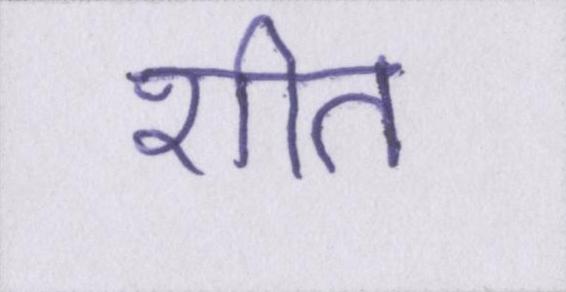 शीत